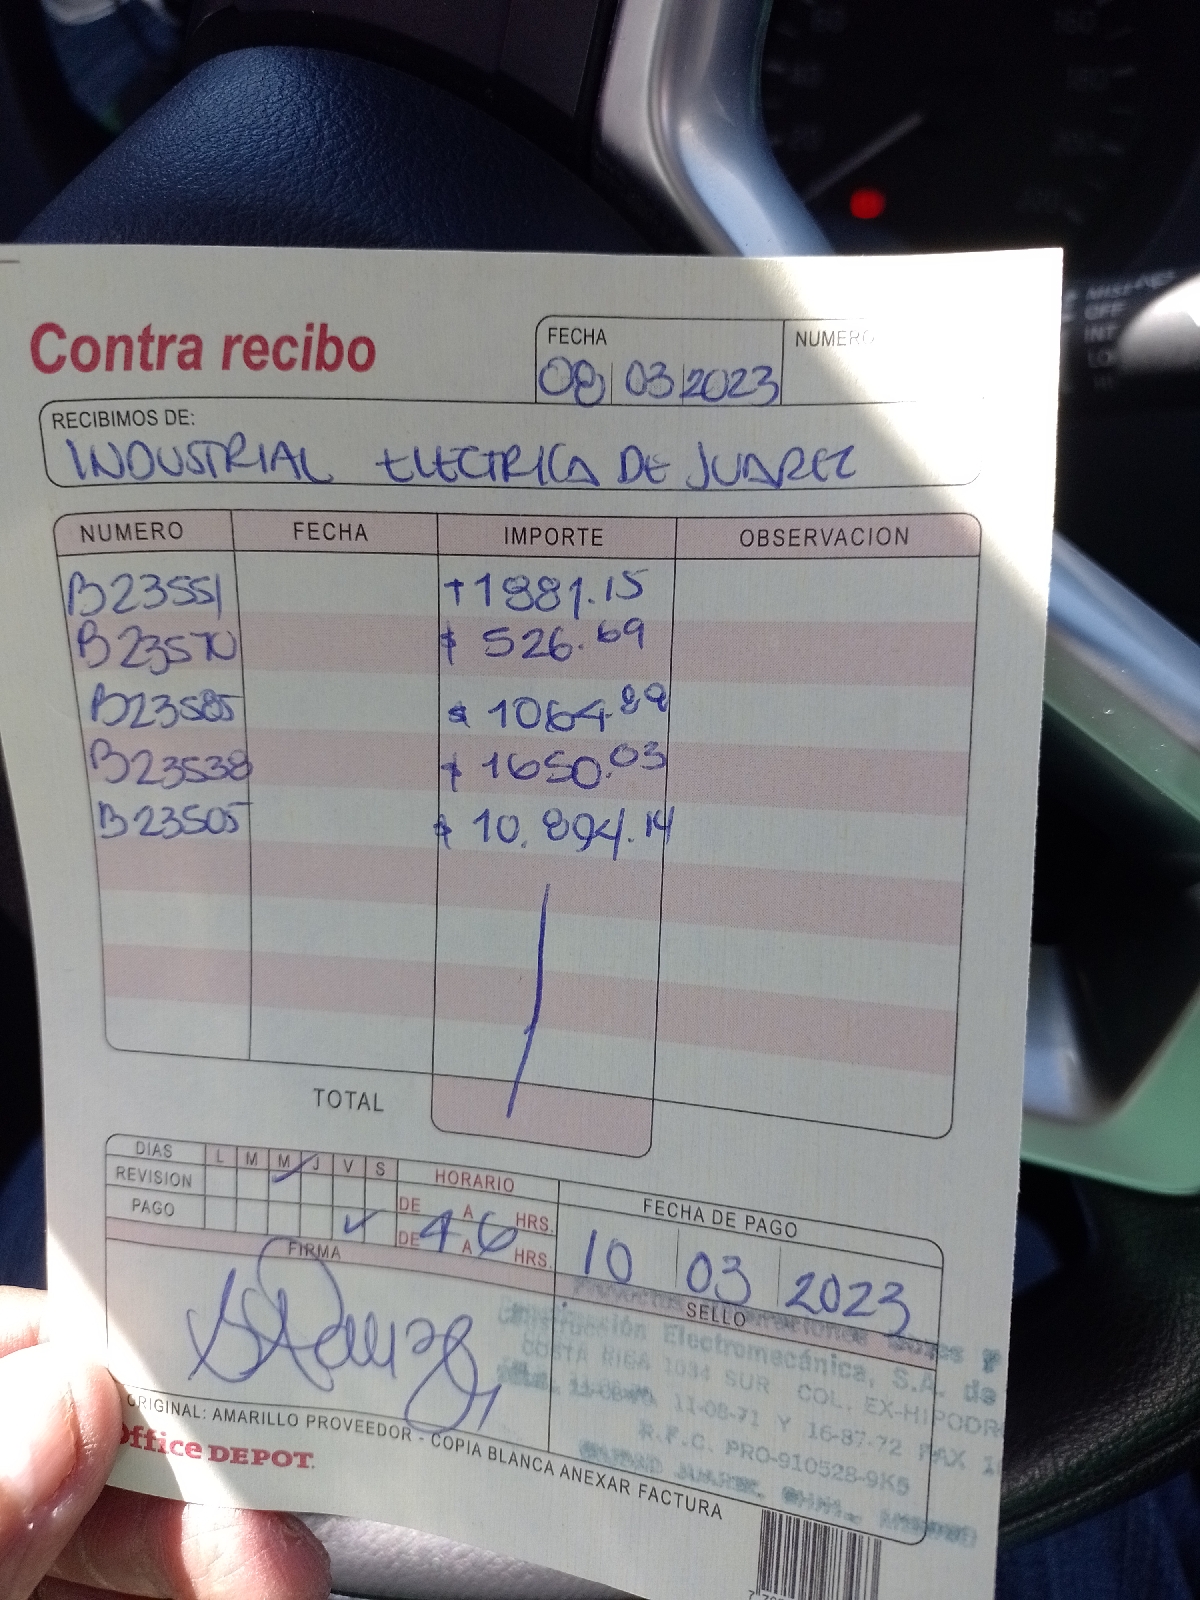 Contra recibo
FECHA NUMERO
08 03 2023
RECIBIMOS DE:
INDUSTRIAL ELECTRICA DE JUAREZ
NUMERO FECHA IMPORTE OBSERVACION
B23551 $1881.15
B23570 $ 526.69
B23585 $ 1064.89
B23538 $ 1650.03
B23505 $ 10,894.14
TOTAL
DIAS L M M J V S HORARIO FECHA DE PAGO
REVISION DE A HRS.
PAGO DE 4 A 6 HRS.
10 03 2023
FIRMA SELLO
Construcción Electromecánica, S.A. de
COSTA RICA 1034 SUR COL. EX-HIPODR
11-08-71 Y 16-87-72 FAX 1
R.F.C. PRO-910528-9K5
CIUDAD JUAREZ, CHIH., MEXICO
ORIGINAL: AMARILLO PROVEEDOR - COPIA BLANCA ANEXAR FACTURA
Office DEPOT.